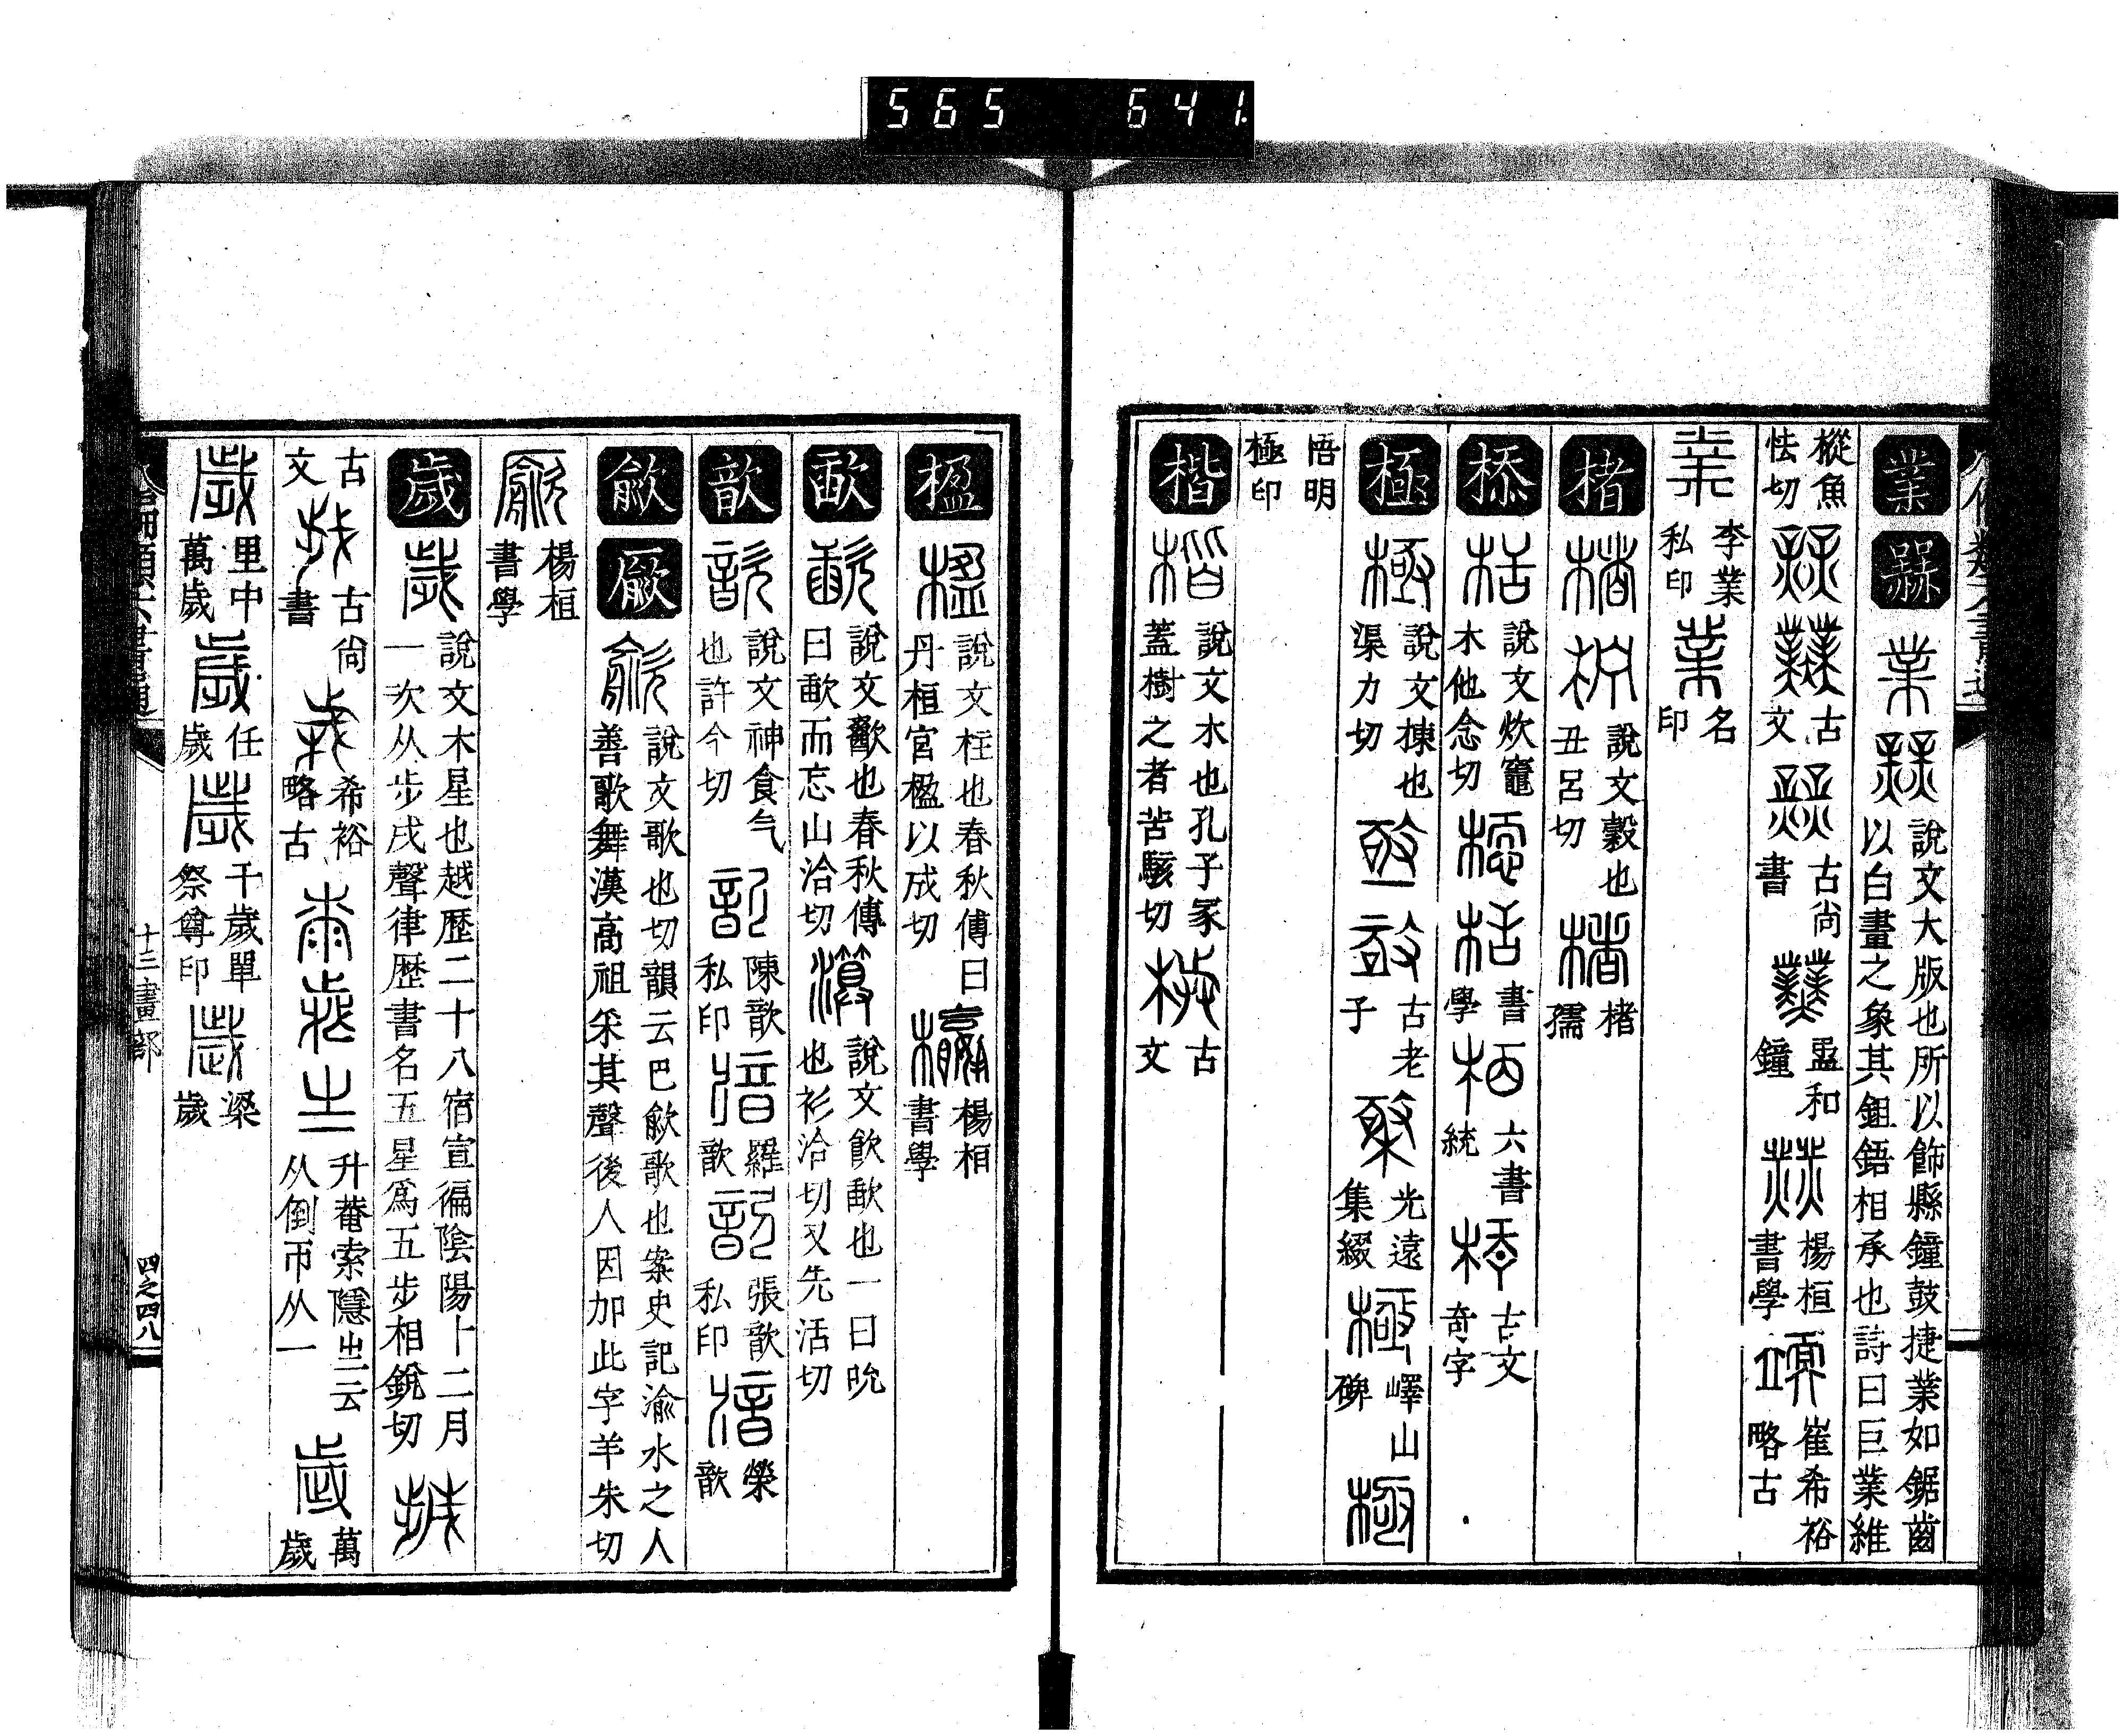 565 641
業 𤑔 業 說文大版也所以飾縣鐘鼓捷業如鋸齒以白畫之象其鉏鋙相承也詩曰巨業維
樅魚怯切 古文 古尚書 盄和鐘 楊桓書學 崔希裕略古
業 李業私印 業 名印
楮 楮 說文穀也丑呂切 楮 楮孺
㮇 說文炊竈木他念切 書學 六書統 古文奇字
極 極 說文棟也渠力切 古老子 光遠集綴 極 嶧山碑 極
悟明極印
楷 楷 說文木也孔子冢蓋樹之者苦駭切 古文
楹 楹 說文柱也春秋傳曰丹桓宮楹以成切 楊桓書學
歃 歃 說文歠也春秋傳曰歃而忘山洽切 說文飲歃也一曰吮也衫洽切又先活切
歆 歆 說文神食气也許今切 歆 陳歆私印 歆 羅歆 歆 張歆私印 歆 榮歆
歈 歈 說文歌也切韻云巴歈歌也案史記渝水之人善歌舞漢高祖采其聲後人因加此字羊朱切
楊桓書學
歲 歲 說文木星也越歷二十八宿宣徧陰陽十二月一次从步戌聲律歷書名五星爲五步相銳切
古文 古尚書 希裕略古 升菴索隱㞢云从倒帀从一 歲 萬歲
歲 里中萬歲 歲 任歲 歲 千歲單祭尊印 歲 梁歲
十三畫部
四之四八